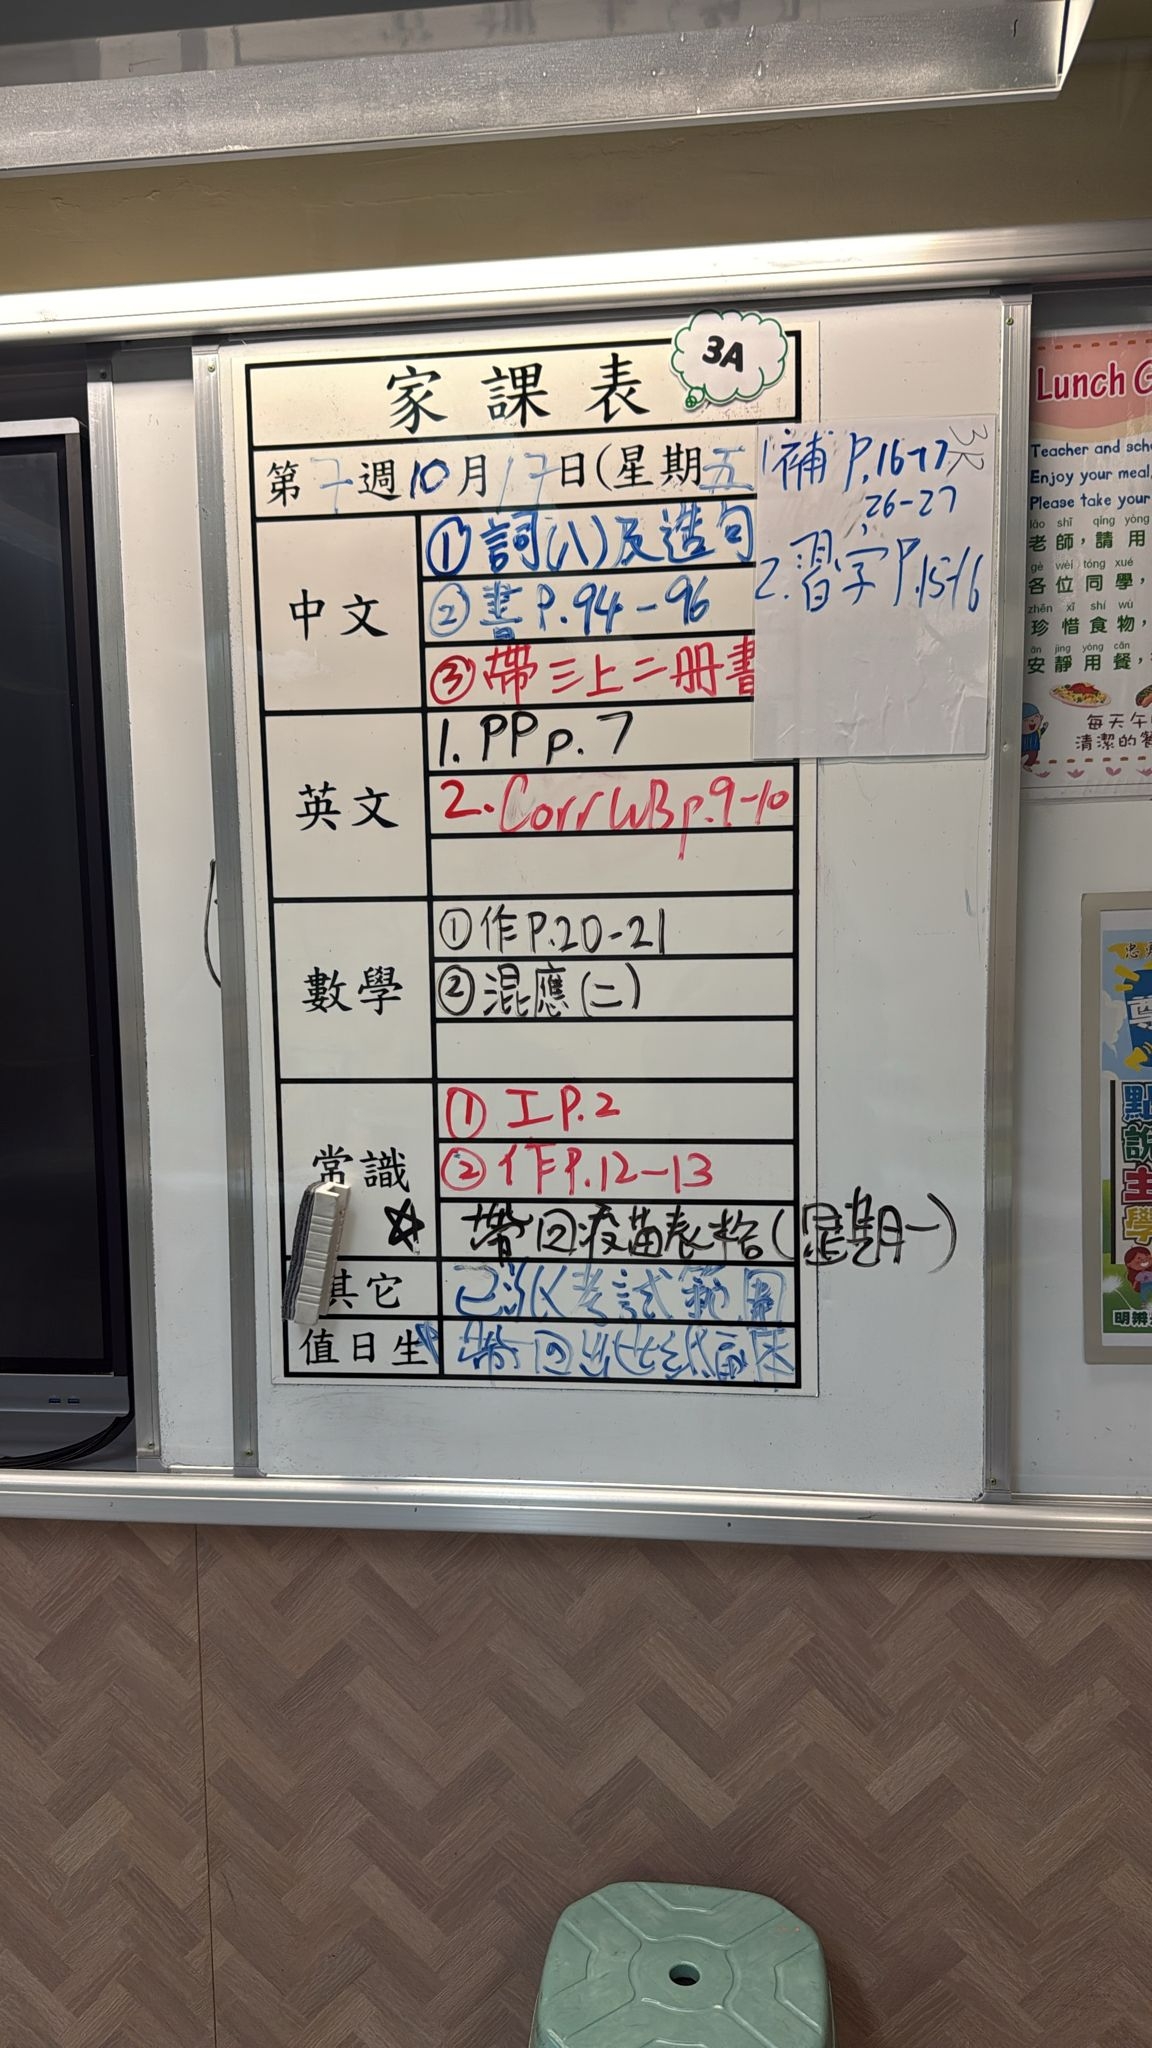 3A
家課表
第七週10月17日(星期五
中文
①詞(八)及造句
②書P.94-96
③帶三上二冊書
英文
1. PP p. 7
2. Corr WB p.9-10
數學
①作P.20-21
②混應(二)
常識
① 工P.2
②作P.12-13
☆ 帶回疫苗表格(星期一)
其它
已派考試範圍
值日生
帶回
3K
1.補P.16-17
26-27
2.習字P.15-16
Lunch G
Teacher and scho
Enjoy your meal,
Please take your
lǎo shī qǐng yòng
老師，請用
gè wèi tóng xué
各位同學，
zhēn xī shí wù
珍惜食物，
ān jìng yòng cān
安靜用餐，
每天午
清潔的餐
尊
點
說
主
學
明辨